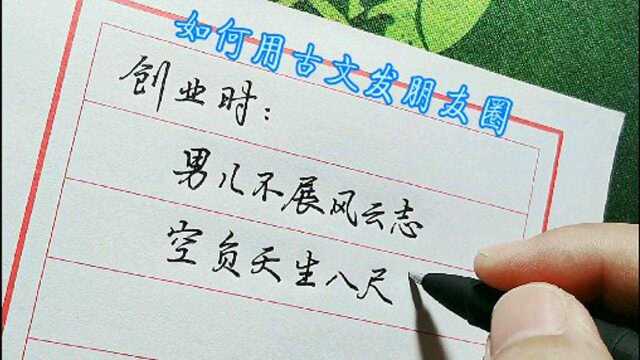 如何用古文发朋友圈
创业时：
男儿不展风云志
空负天生八尺